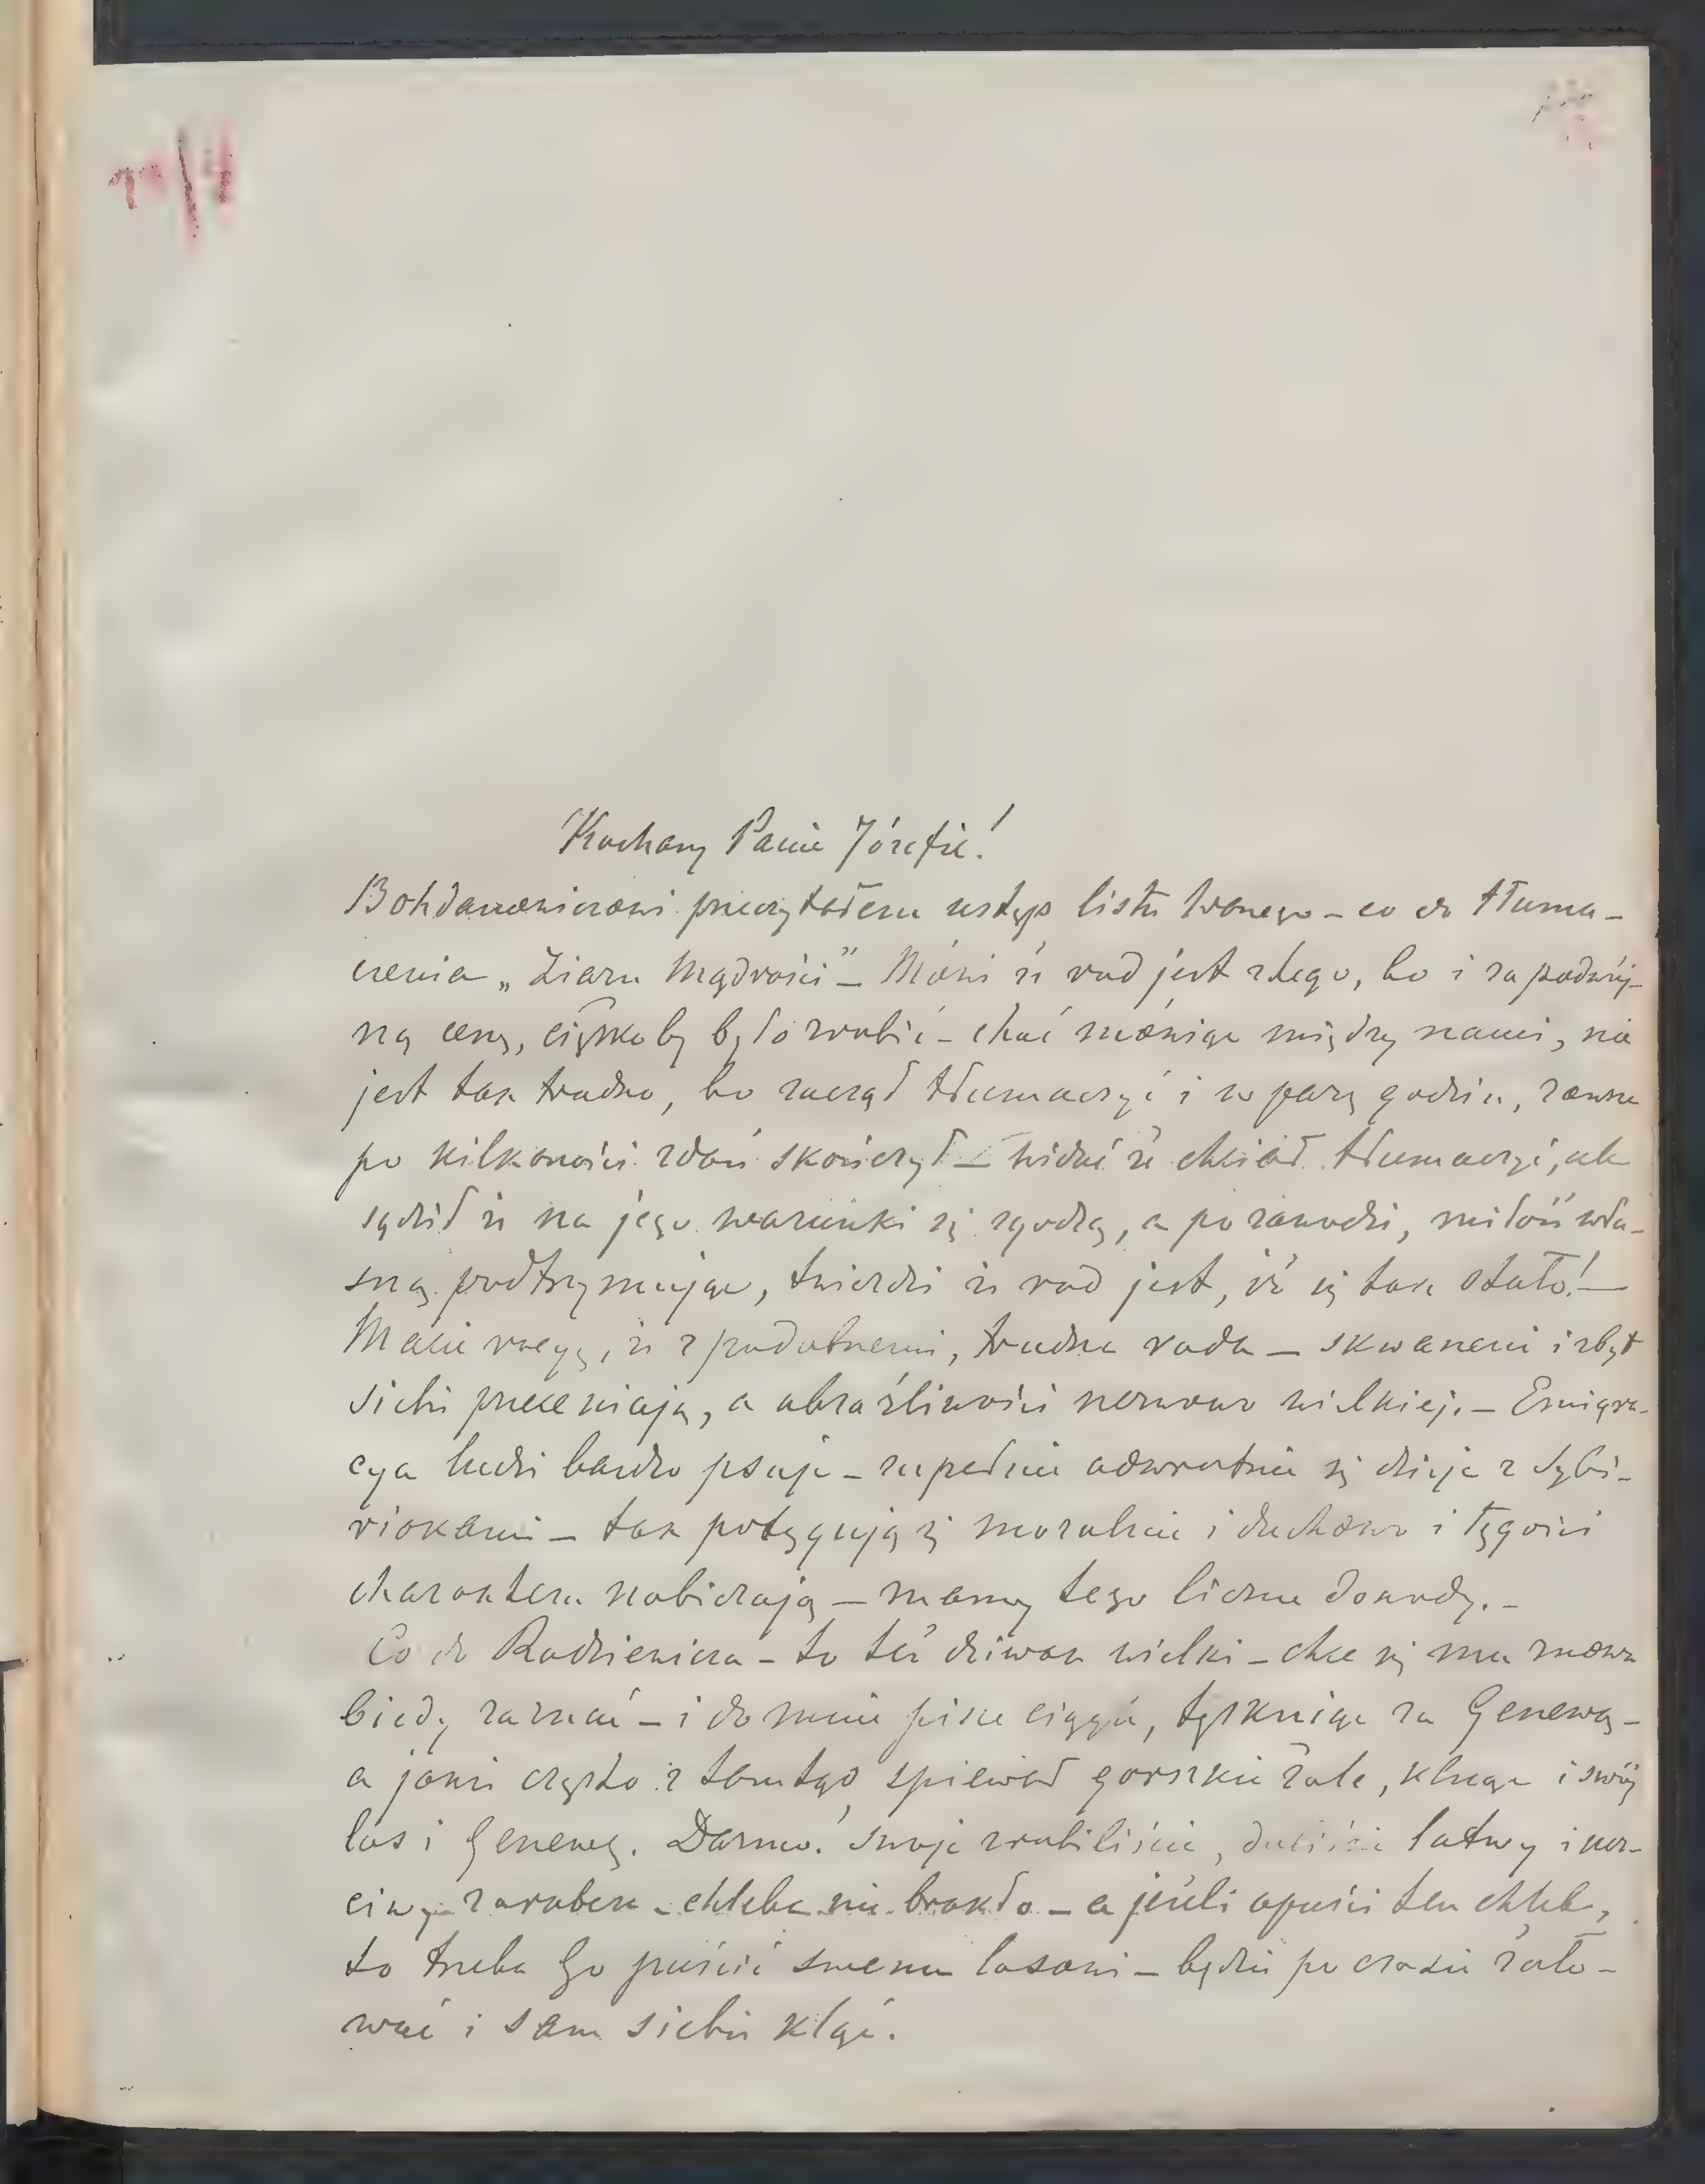 Kochany Panie Józefie!
Bohdanowiczowi przeczytałem ustęp listu Twego – co do tłuma-
czenia „Ziarn Mądrości” – Mówi że rad jest z tego, bo i za podwój-
ną cenę, ciężko by było zrobić – choć mówiąc między nami, nie
jest tak trudno, bo zaczął tłumaczyć i w parę godzin, zawsze
po kilkanaście zdań skończył – widać że chciał tłumaczyć, ale
sądził że na jego warunki się zgodzą, a po zawodzie, miłość wła-
sną podtrzymując, twierdzi że rad jest, iż się tak stało! –
Macie racyę, że z podobnemi, trudna rada – skwaszeni i zbyt
siebie przeceniają, a obraźliwości nerwowo wielkiej. – Emigra-
cya ludzi bardzo psuje – zupełnie odwrotnie się dzieje z Sybi-
riakami – tak potęgują się moralnie i duchowo i tęgości
charakteru nabierają – mamy tego liczne dowody. –
Co do Radziewicza – to też dziwak wielki – chce się mu znowu
biedy zaznać – i do mnie pisze ciągle, tęskniąc za Genewą –
a jakże często z tamtąd, śpiewał gorzkie żale, klnąc i swój
los i Genewę. Darmo! swoje zrobiliście, daliście łatwy i ucz-
ciwy zarobek – chleba nie brakło – a jeżeli opuści ten chleb,
to trzeba Go puścić swemu losowi – będzie po czasie żało-
wać i sam siebie kląć.